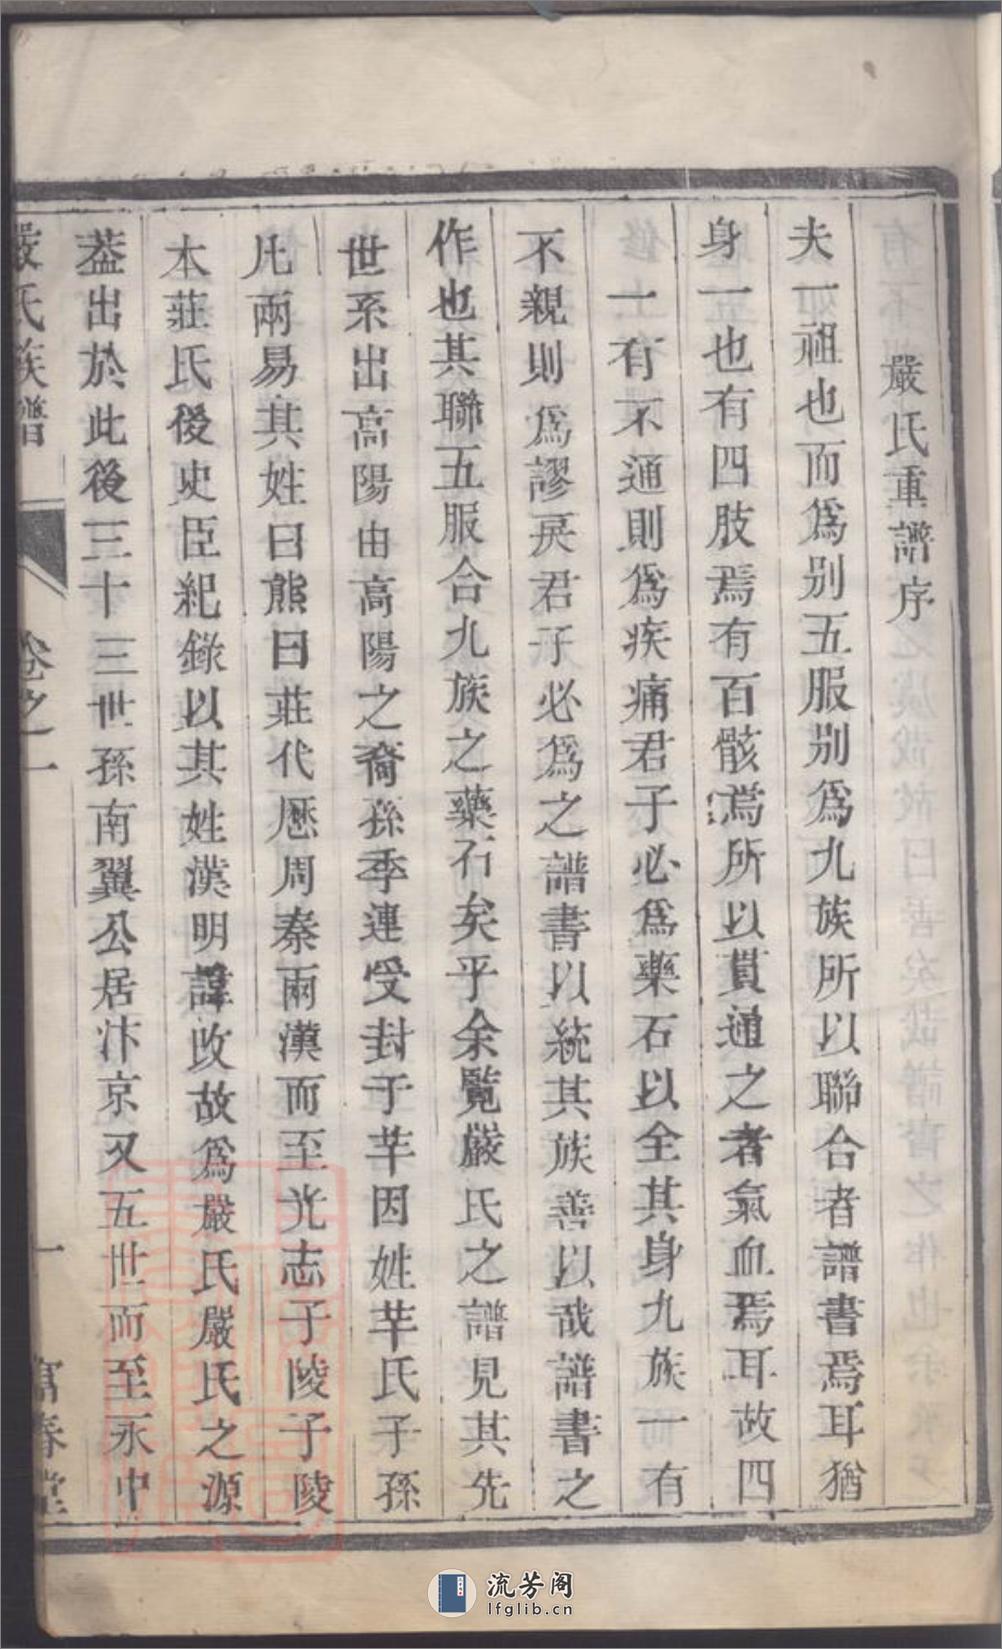 嚴氏重譜序
夫一祖也而爲别五服别爲九族所以聯合者譜書焉耳猶
身一也有四肢焉有百骸焉所以貫通之者氣血焉耳故四
一有不通則爲疾痛君子必爲藥石以全其身九族一有
不親則爲謬戾君子必爲之譜書以統其族善以哉譜書之
作也其聯五服合九族之藥石矣乎余覧嚴氏之譜見其先
世系出高陽由高陽之裔孫季連受封于芉因姓芉氏子孫
凡兩易其姓曰熊曰莊代歷周秦兩漢而至光志子陵子陵
本莊氏後史臣紀錄以其姓漢明諱改故爲嚴氏嚴氏之源
葢出於此後三十三世孫南翼公居汴京又五世而至永中
嚴氏族譜
卷之一
一
富春堂
流芳阁
lfglib.cn